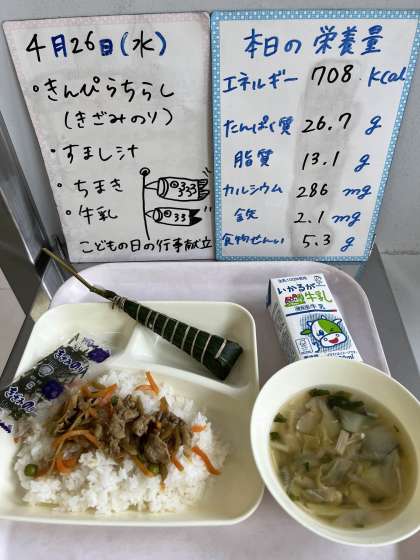 4月26日(水)
・きんぴらちらし
(きざみのり)
・すまし汁
・ちまき
・牛乳
こどもの日の行事献立
本日の栄養量
エネルギー 708 kcal
たんぱく質 26.7 g
脂質 13.1 g
カルシウム 286 mg
鉄 2.1 mg
食物せんい 5.3 g
いかるが
牛乳